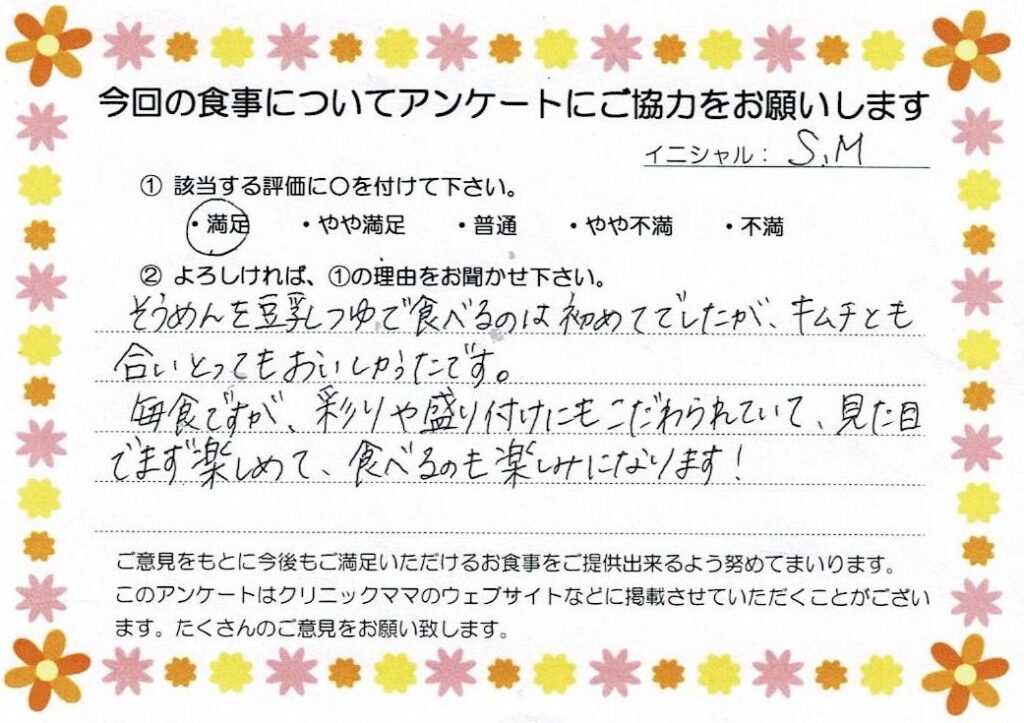 今回の食事についてアンケートにご協力をお願いします
イニシャル： S.M
① 該当する評価に〇を付けて下さい。
・満足 ・やや満足 ・普通 ・やや不満 ・不満
② よろしければ、①の理由をお聞かせ下さい。
そうめんを豆乳しつゆで食べるのは初めてでしたが、キムチとも
合いとってもおいしかったです。
毎食ですが、彩りや盛り付けにもこだわられていて、見た目
でまず楽しめて、食べるのも楽しみになります！
ご意見をもとに今後もご満足いただけるお食事をご提供出来るよう努めてまいります。
このアンケートはクリニックママのウェブサイトなどに掲載させていただくことがござい
ます。たくさんのご意見をお願い致します。